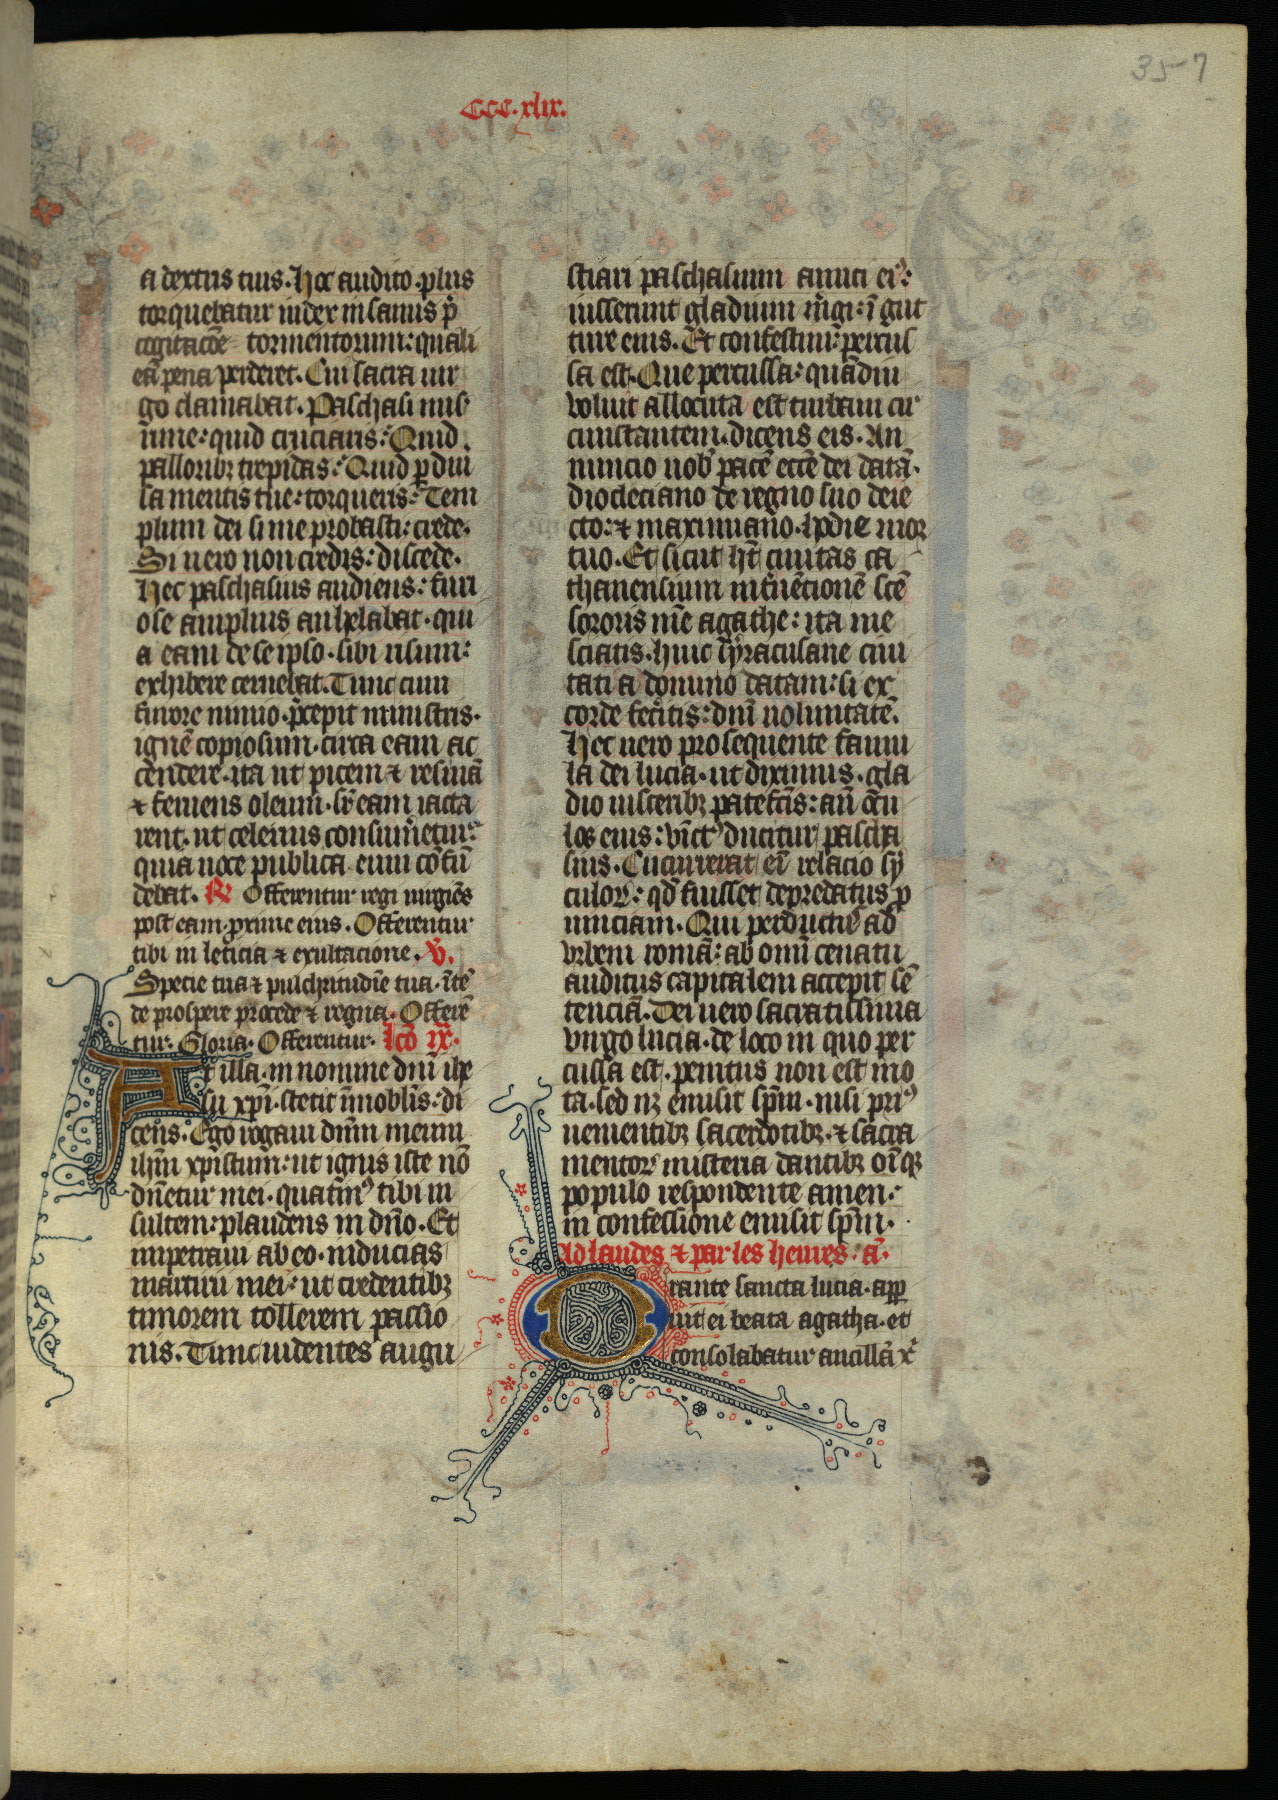 35-7
CCC.xlix.
a dextris tuis. Hoc audito. plus
torquebatur iudex insanus p̄
cogitacōe tormentorum: quali
eā pena perderet. Cui sacra uir
go clamabat. Paschasi mis
ime: quid cruciaris: Quid
palloribȝ trepidas: Quid ꝑdiu
la mentis tue: torqueris: Tem
plum dei si me probasti: crede.
Si uero non credis: discede.
Hec paschasius audiens: furi
ose amplius anhelabat. qui
a eam de se ipso. sibi uisum:
exhibere cernebat. Tunc cum
furore nimio. p̄cepit ministris.
ignē copiosum. circa eam ac
cendere. ita ut picem ⁊ resinā
⁊ feruens oleum. sr̄ eam iacta
rent. ut celerius consumeretur:
quia uoce publica eum cōfū
debat. R̷ Offerentur regi uirgiēs
post eam proxime eius. Offerentur
tibi in leticia ⁊ exultacione. V̷.
Specie tua ⁊ pulchritudīe tua. ītē
de prospere procede ⁊ regna. Offerē
tur. Gloria. Offerentur. lcō ix̄.
At illa. in nomine dn̄i ihe
su xp̄i. stetit īmobl̄is: di
cens. Ego rogaui dn̄m meum
ihm̄ xp̄istum: ut ignis iste nō
dn̄etur mei. quatin᷒ tibi in
sultem: plaudens in dn̄o. Et
impetraui ab eo. inducias
martirii mei: ut credentibȝ
timorem tollerem passio
nis. Tunc uidentes augu
stiari paschasium amici ei᷒:
iusserunt gladium m̄gi: ī gut
ture eius. Et confestim: percus
sa est. Que percussa: quādiu
voluit allocuta est turbam cir
cumstantem. dicens eis. An
nuncio uob̄ pacē ecc̄e dei datā.
diocleciano de regno suo deie
cto: ⁊ maximiano. hodie mor
tuo. Et sicut hē ciuitas ca
thanensium int̄uētionē sc̄e
sororis mē agathe: ita me
sciatis. huic syracusane ciui
tati a domino datam: si ex
corde fecitis: dn̄i uoluntatē.
Hec uero prosequente famu
la dei lucia. ut diximus. gla
dio uisceribȝ patefc̄is: an̄ ocu
los eius: vinct᷒ ducitur pascha
sius. Cucurrerat eī relacio sy
culoꝝ: qd̄ fuisset depredatus ꝓ
uinciam. Qui perductus ad
vrbem romā: ab omī cenatu
auditus capitalem accepit sē
tenciā. Dei uero sacratissima
virgo lucia. de loco in quo per
cussa est. penitus non est mo
ta. sed nȝ emisit spm̄. nisi pri᷒
uenientibȝ sacerdotibȝ. ⁊ sacra
mentoꝝ misteria dantibȝ oīqȝ
populo respondente amen:
in confessione emisit spm̄.
Ad laudes ⁊ par les heures: a̅.
Orante sancta lucia. app
uit ei beata agatha. et
consolabatur ancillā x̄